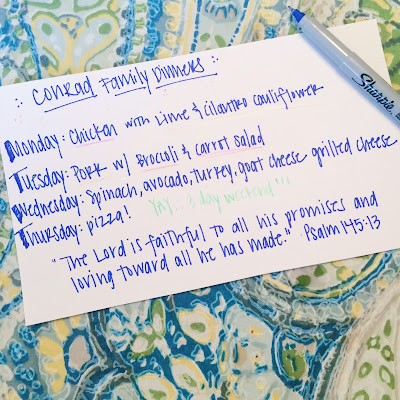 Conrad Family Dinners
Monday: Chicken with Lime & cilantro cauliflower
Tuesday: Pork w/ Broccoli & carrot salad
Wednesday: Spinach, avocado, turkey, goat cheese grilled cheese
Thursday: pizza! Yay... 3 day weekend!!!
"The Lord is faithful to all his promises and
loving toward all he has made." Psalm 145:13
Sharpie